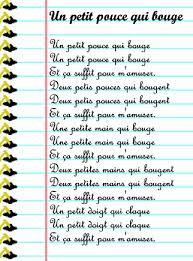 Un petit pouce qui bouge
Un petit pouce qui bouge
Un petit pouce qui bouge
Et ça suffit pour m'amuser.
Deux petis pouces qui bougent
Deux petits pouces qui bougent
Et ça suffit pour m'amuser.
Une petite main qui bouge
Une petite main qui bouge
Et ça suffit pour m'amuser.
Deux petites mains qui bougent
Deux petites mains qui bougent
Et ça suffit pour m'amuser.
Un petit doigt qui claque
Un petit doigt qui claque
Et ça suffit pour m'amuser.